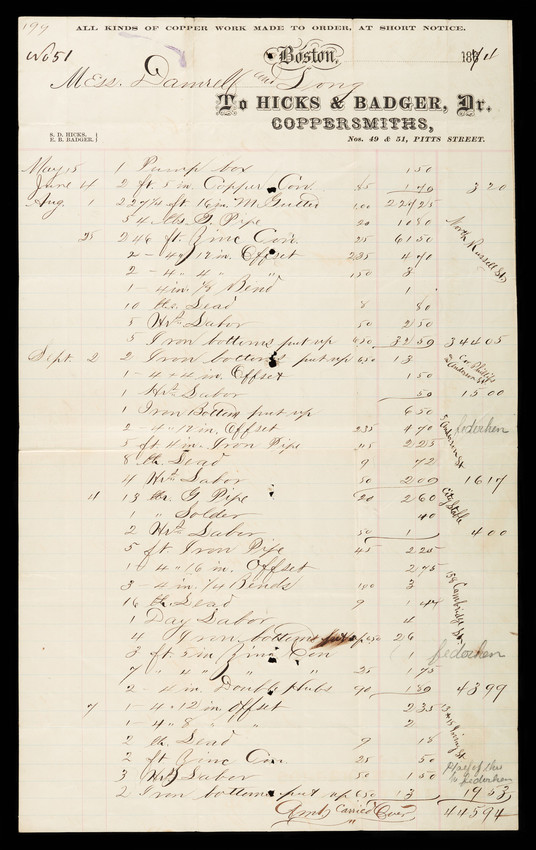 199
ALL KINDS OF COPPER WORK MADE TO ORDER, AT SHORT NOTICE.
No 51
Boston, 187
Mess. Damrell and Long
To HICKS & BADGER, Dr.
COPPERSMITHS,
S. D. HICKS.
E. B. BADGER.
Nos. 49 & 51, PITTS STREET.
May 15 1 Pump box 1 50
June 4 2 ft. 5 in. Copper Con. 85 1 70 3 20
Aug. 1 ft 16 in. M. Gutter 1,00
54 lbs. G. Pipe 20 10 80
North Russell St.
25 246 ft. Zinc Con. 25 61 50
2 - 4 × 17 in. Offset 235 4 70
2 - 4 " 4 " " 150 3
1 - 4 in. 1/8 Bend 1
10 lbs. Lead 8 80
5 Hrs. Labor 50 2 50
5 Iron bottoms put up 650 32 50 344 05
Sept. 2 2 Iron bottoms put up 650 13
Cor. Phillips & Anderson St.
1 - 4 × 4 in. Offset 1 50
1 Hr. Labor 50 15 00
1 Iron Bottom put up 6 50
2 - 4 × 17 in. Offset 235 4 70
Anderson St.
5 ft 4 in. Iron Pipe 45 2 25
8 lb. Lead 9 72
4 Hrs. Labor 50 2 00 16 17
4 13 lbs. G. Pipe 20 2 60
City Stable
1 " Solder 40
2 Hrs. Labor 50 1 4 00
5 ft Iron Pipe 45 2 25
1 - 4 × 16 in. Offset 2 75
3 - 4 in. 1/4 Bends 100 3
Cambridge St.
16 lb. Lead 9 1 44
1 Day Labor 4
4 Iron bottoms put up 650 26
3 ft. 5 in Zinc Con 1
7 " 4 " " " 25 1 75
2 - 4 in. Double 90 1 80 43 99
7 1 - 4 × 12 in. Offset 2 35
1 - 4 " 8 " " 2
Irving St.
2 lb. Lead 9 18
2 ft Zinc Con. 25 50
3 Hrs. Labor 50 1 50
2 Iron bottoms put up 650 13 19 53
Amt. Carried Over 445 94